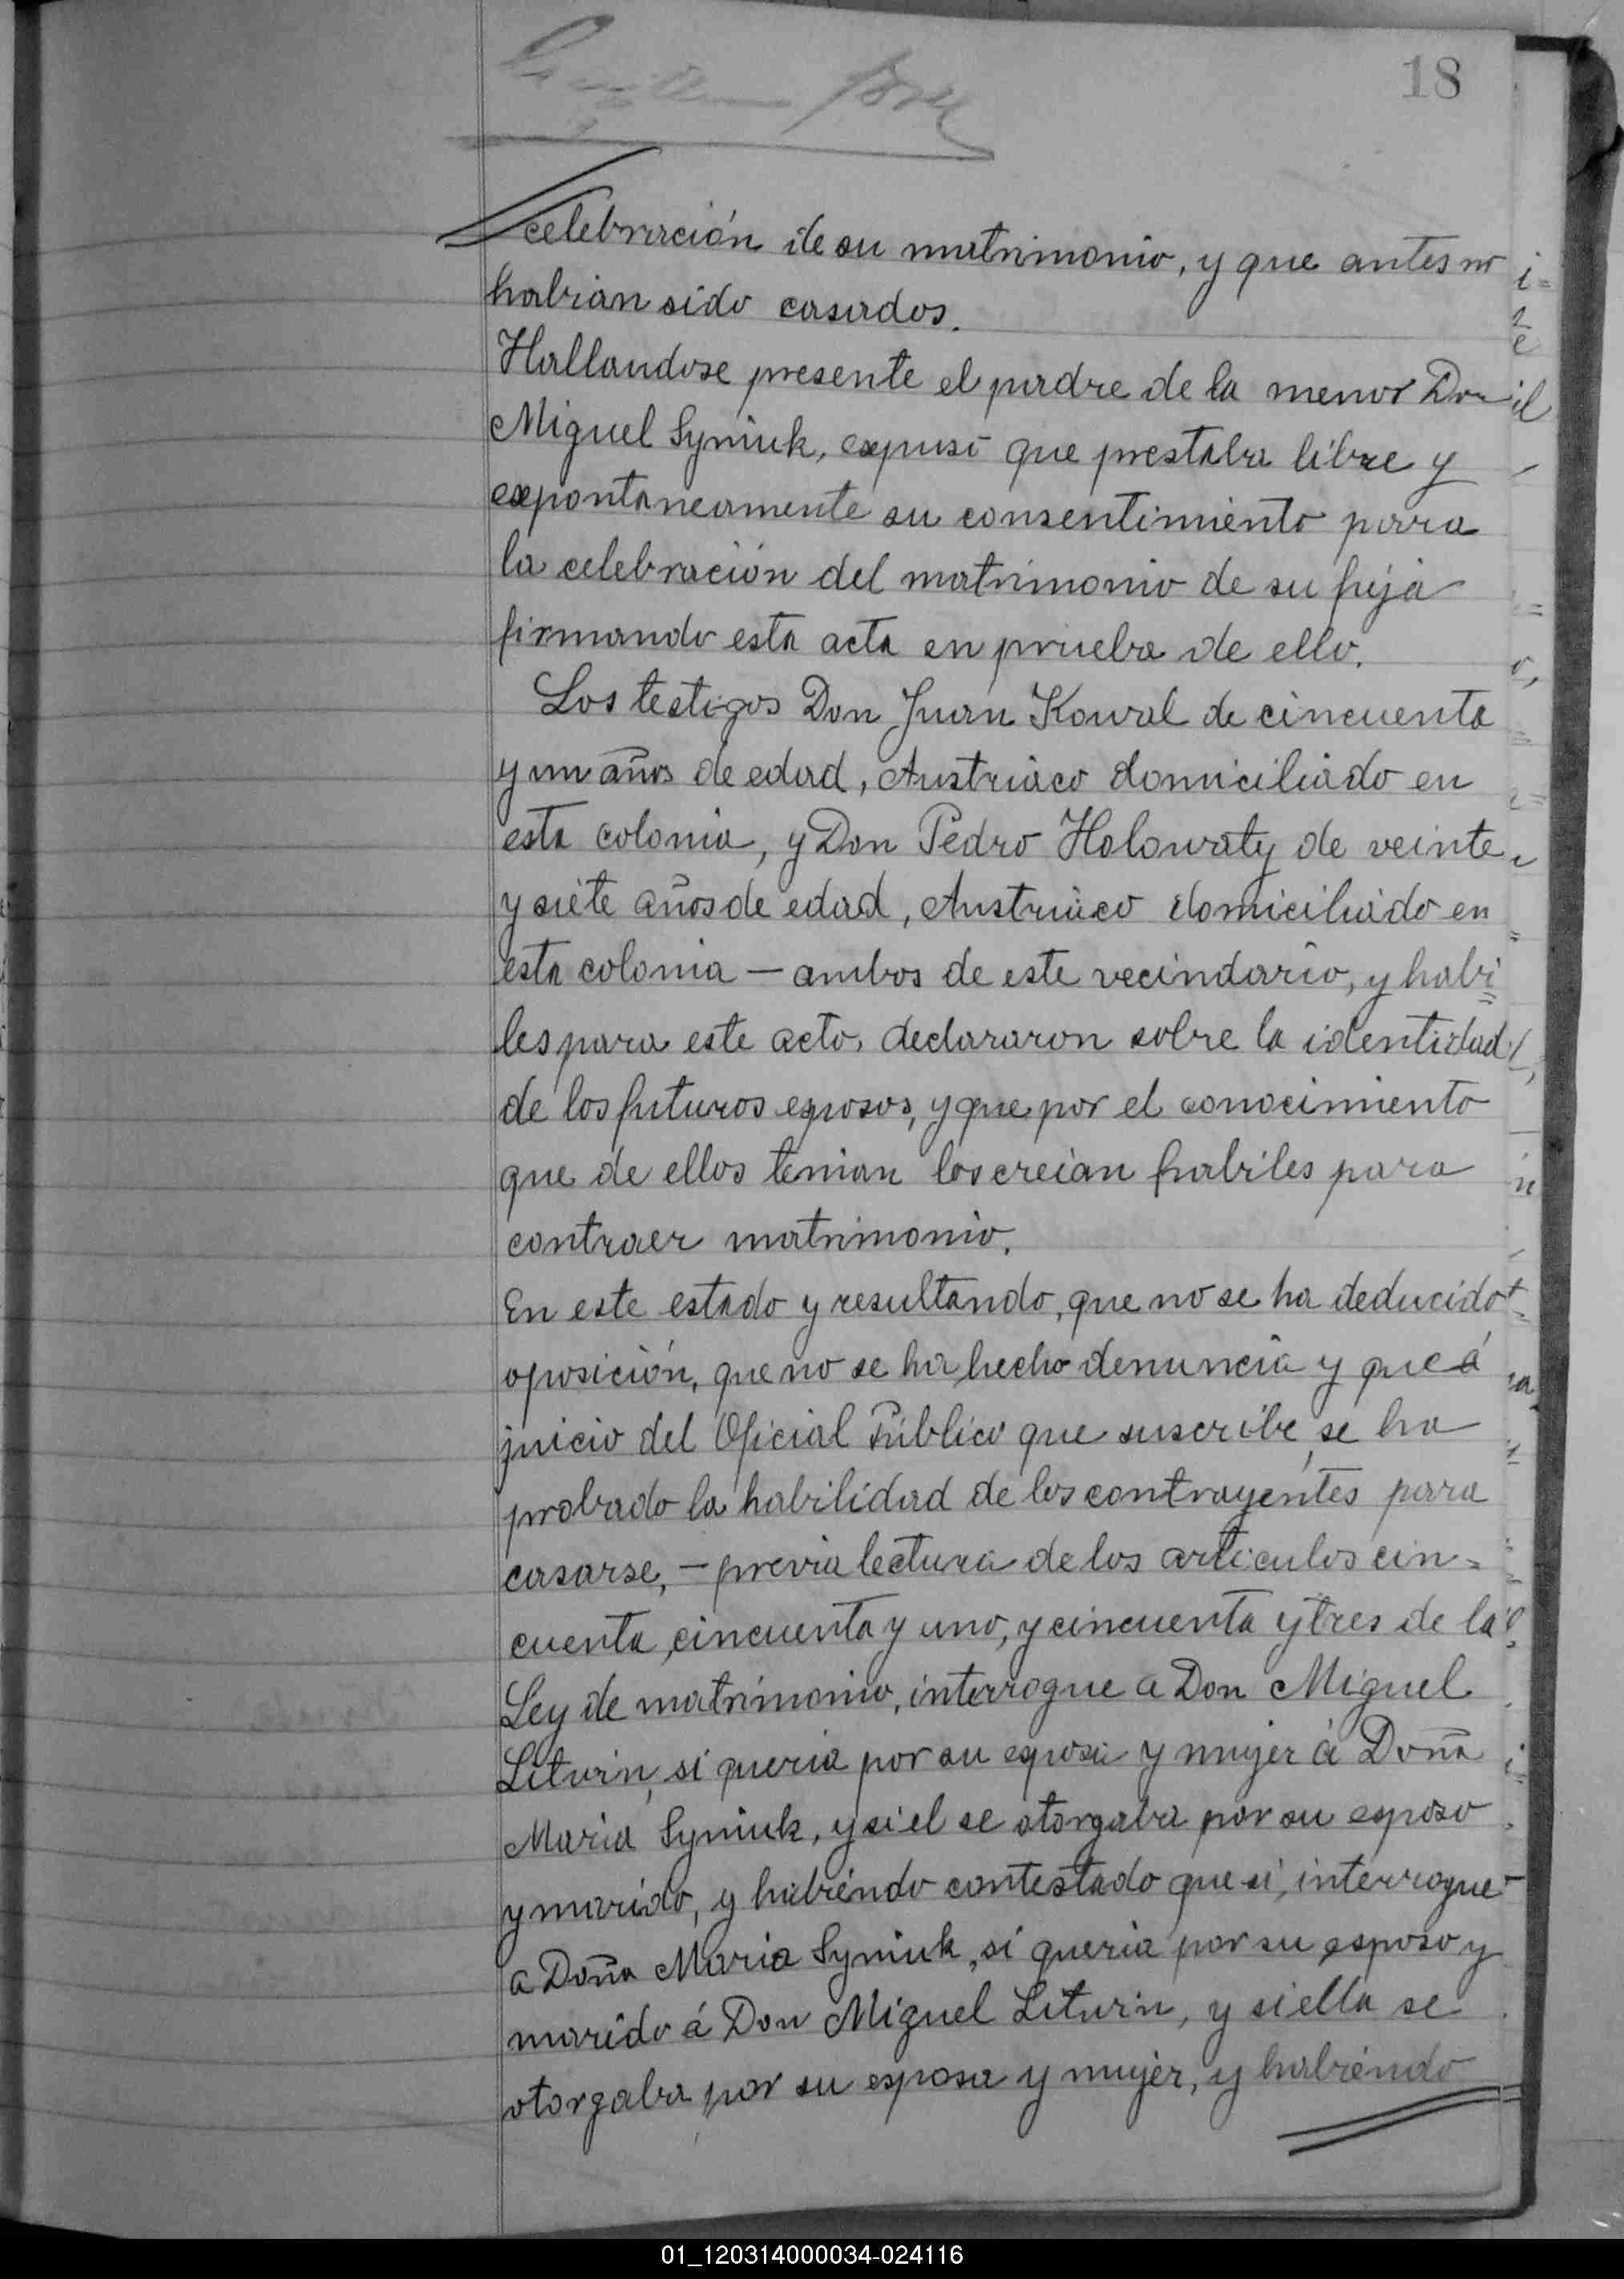 18
celebración de su matrimonio, y que antes no
habian sido casados.
Hallandose presente el padre de la menor Don
Miguel Syniuk, expuso que prestaba libre y
expontaneamente su consentimiento para
la celebración del matrimonio de su hija
firmando esta acta en prueba de ello.
Los testigos Don Juan Kowal de cincuenta
y un años de edad, Austriaco domiciliado en
esta colonia, y Don Pedro Holowaty de veinte
y siete años de edad, Austriaco domiciliado en
esta colonia — ambos de este vecindario, y habi=
les para este acto, declararon sobre la identidad
de los futuros esposos, y que por el conocimiento
que de ellos tenian los creian habiles para
contraer matrimonio.
En este estado y resultando, que no se ha deducido
oposición, que no se ha hecho denuncia y que á
juicio del Oficial Público que suscribe, se ha
probado la habilidad de los contrayentes para
casarse, — previa lectura de los articulos cin=
cuenta, cincuenta y uno, y cincuenta y tres de la
Ley de matrimonio, interrogue a Don Miguel
Liturin, si queria por su esposa y mujer á Doña
Maria Syniuk, y si el se otorgaba por su esposo
y marido, y habiendo contestado que si, interrogue
a Doña Maria Syniuk, si queria por su esposo y
marido á Don Miguel Liturin, y si ella se
otorgaba por su esposa y mujer, y habiendo
01_120314000034-024116